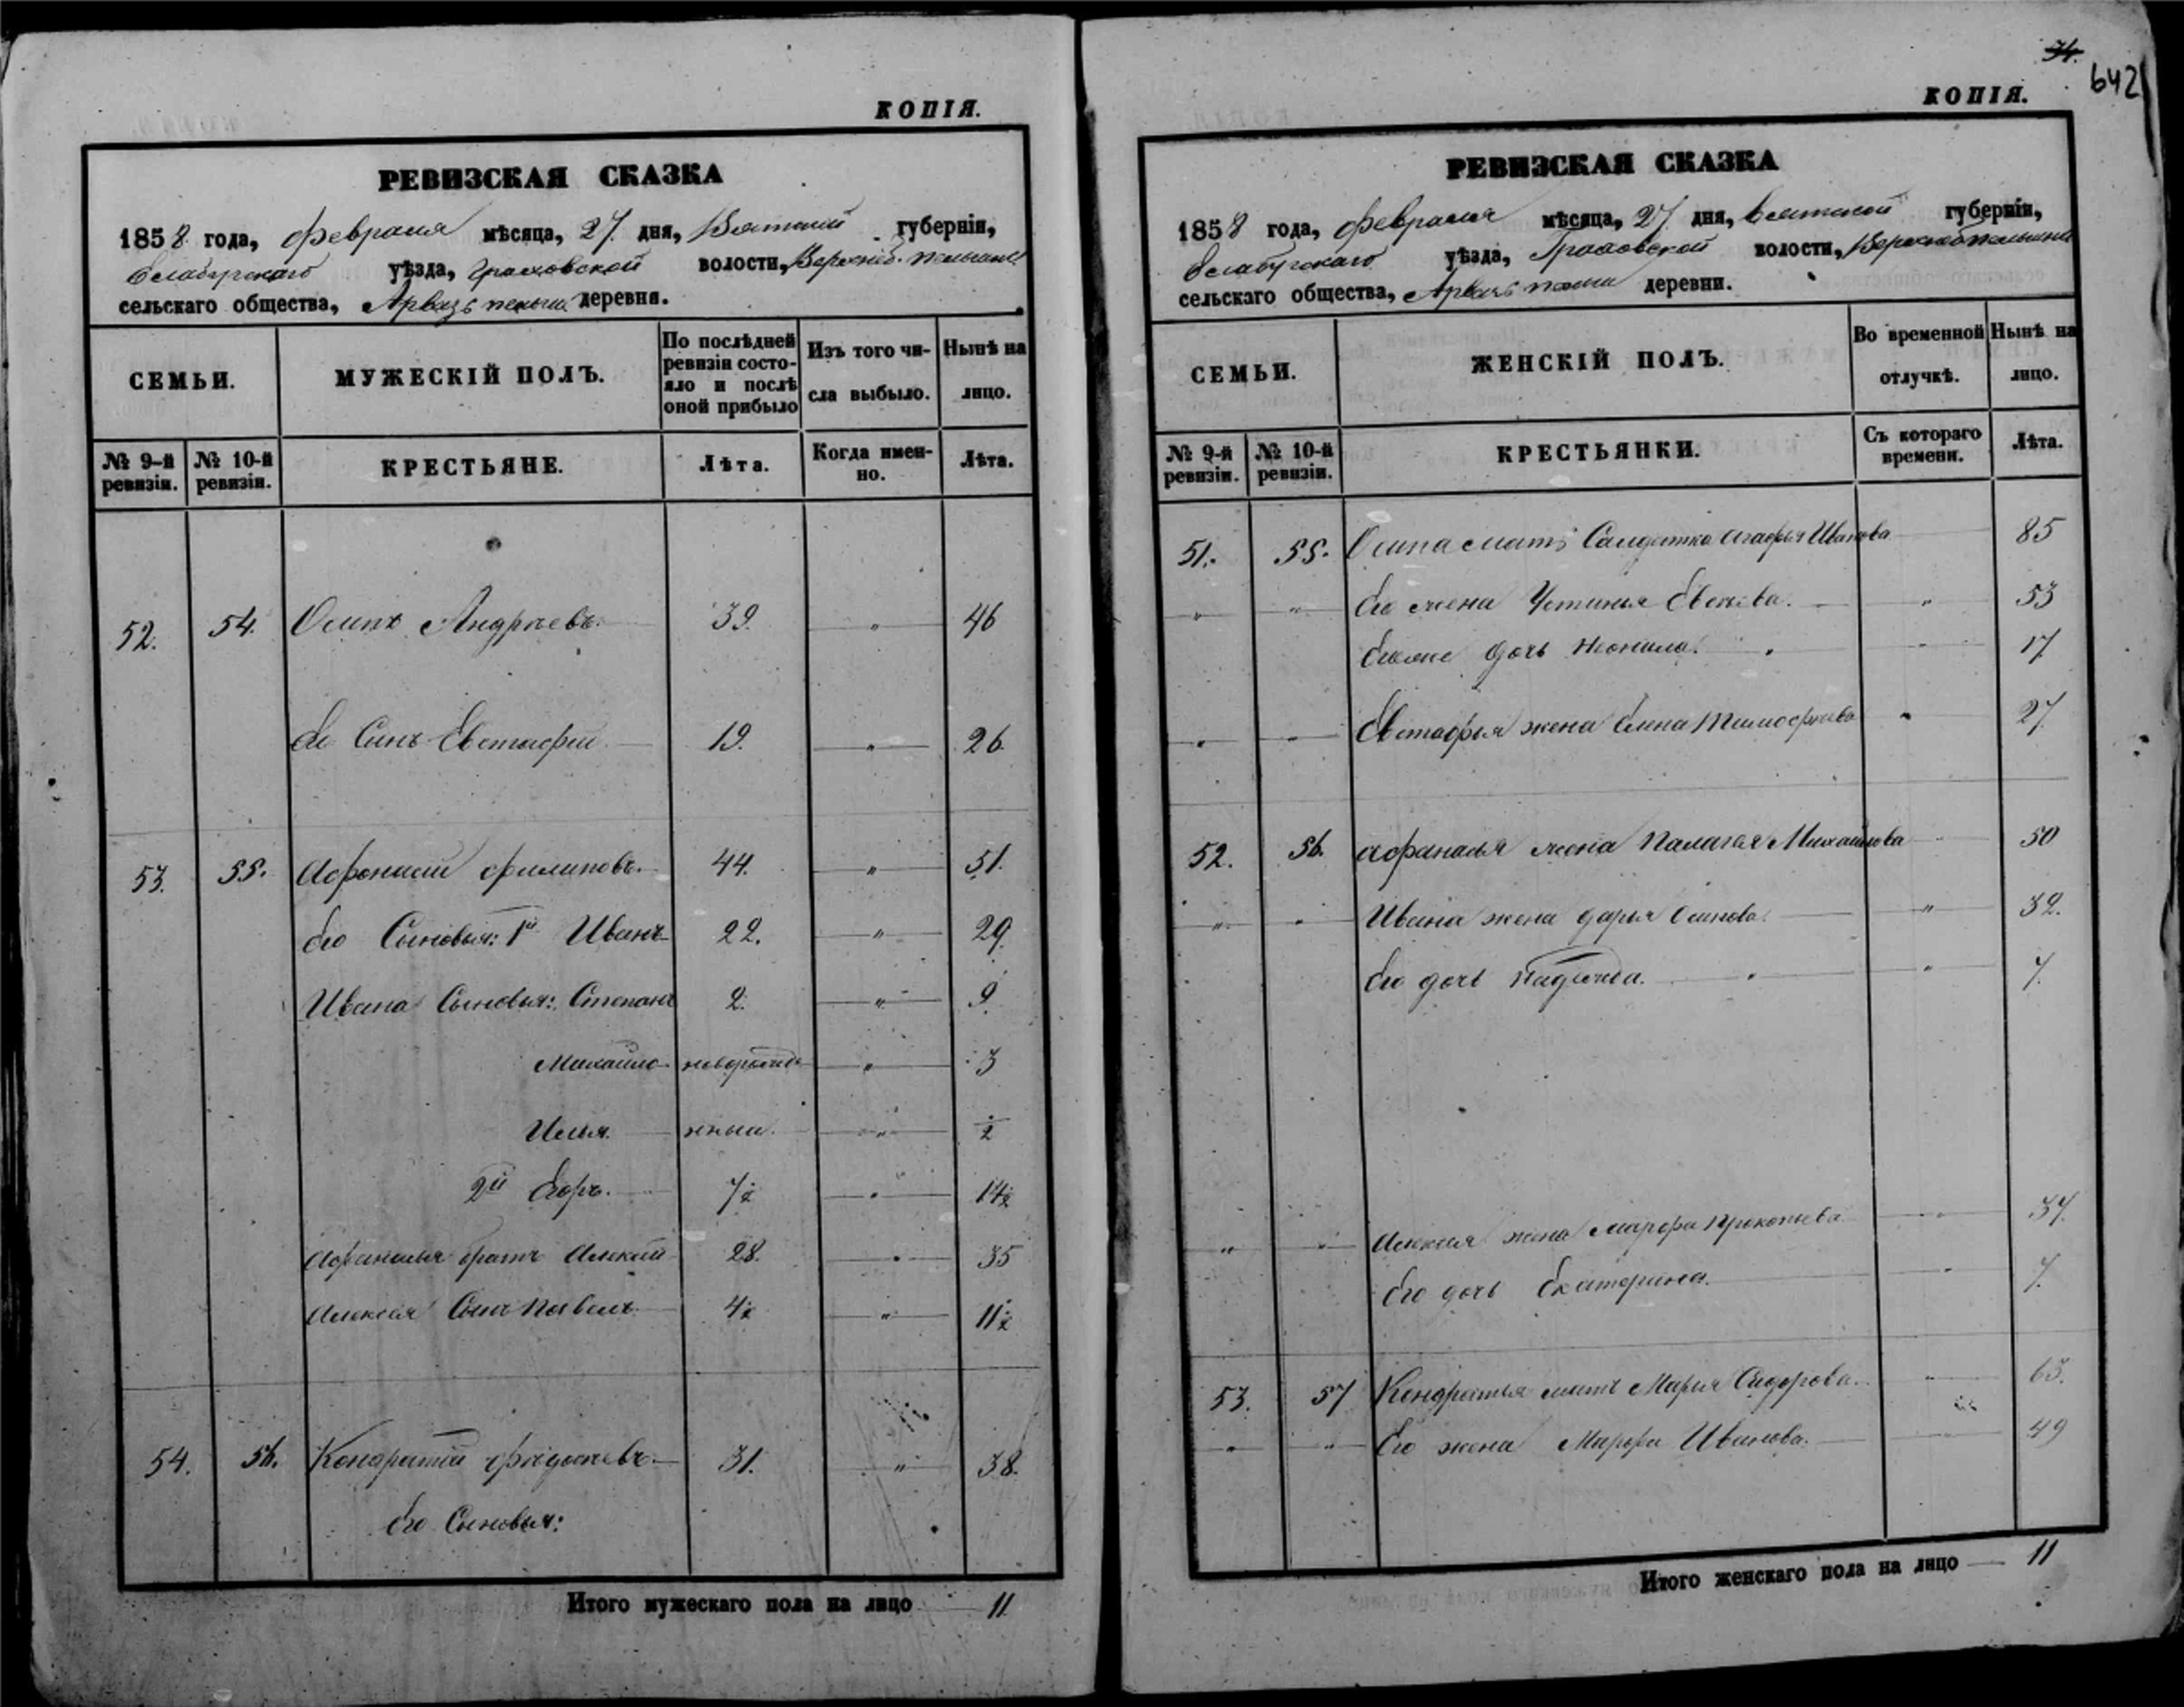 КОПІЯ.
РЕВИЗСКАЯ СКАЗКА
1858 года, Февраля мѣсяца, 27 дня, Вятской губерніи,
Елабугскаго уѣзда, Граховской волости,
сельскаго общества, деревня.
СЕМЬИ. МУЖЕСКІЙ ПОЛЪ. По послѣдней ревизіи состояло и послѣ оной прибыло Изъ того числа выбыло. Нынѣ на лицо.
№ 9-й ревизіи. № 10-й ревизіи. КРЕСТЬЯНЕ. Лѣта. Когда именно. Лѣта.
52. 54. Осипъ Андреевъ. 39. " 46
Его Сынъ Евстафій 19. " 26.
53. 55. Афонасій Филиповъ. 44. " 51.
Его Сыновья: 1й Иванъ 22. " 29.
Ивана Сыновья: Степанъ 2. " 9
Михайло новорожде " 3
Илья. нныи. " ½
2й Егоръ. 7½ " 14½
Афанасья братъ Алексѣй 28. " 35
Алексея Сынъ Павелъ 4½ " 11½
54. 56. Кондратій 31. " 38.
Его Сыновья:
Итого мужескаго пола на лицо 11
34.
642
КОПІЯ.
РЕВИЗСКАЯ СКАЗКА
1858 года, Февраля мѣсяца, 27 дня, Вятской губерніи,
Елабугскаго уѣзда, Граховской волости,
сельскаго общества, деревни.
СЕМЬИ. ЖЕНСКІЙ ПОЛЪ. Во временной отлучкѣ. Нынѣ на лицо.
№ 9-й ревизіи. № 10-й ревизіи. КРЕСТЬЯНКИ. Съ котораго времени. Лѣта.
51. 55. Осипа мать Салдатка Агафья Иванова 85
" " Его жена Устинья " 53
Егоже дочь Неонила. " 17
" " Евстафья жена Елена Тимофеева " 27
52. 56. Афанасья жена Палагея Михайлова 50
" " Ивана жена Дарья Осипова. " 32.
Его дочь Надежда. " 7.
" " Алексея жена Марфа Прокопьева " 37.
Его дочь Екатерина. " 7.
53. 57 Кондратья мать Марья Сидорова. " 63.
" " Его жена Марфа Иванова. " 49
Итого женскаго пола на лицо 11